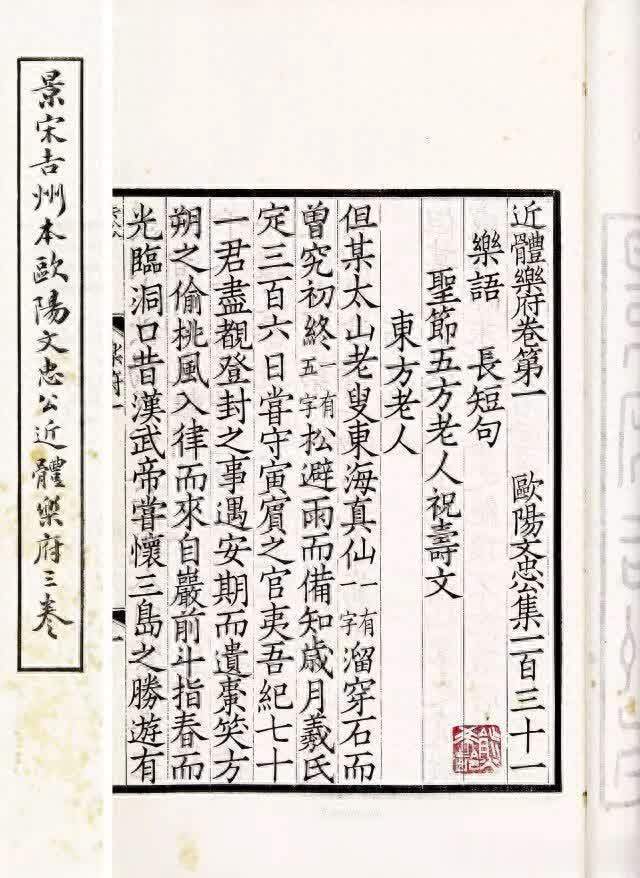 近體樂府卷第一　歐陽文忠公集一百三十一
樂語　長短句
聖節五方老人祝壽文
東方老人
但某太山老叟東海真仙一有一字溜穿石而
曾究初終一有五字松避雨而備知歲月羲氏
定三百六日嘗守寅賓之官夷吾紀七十
一君盡觀登封之事遇安期而遺棗笑方
朔之偷桃風入律而來自巖前斗指春而
光臨洞口昔漢武帝嘗懷三島之勝遊有
景宋吉州本歐陽文忠公近體樂府三卷